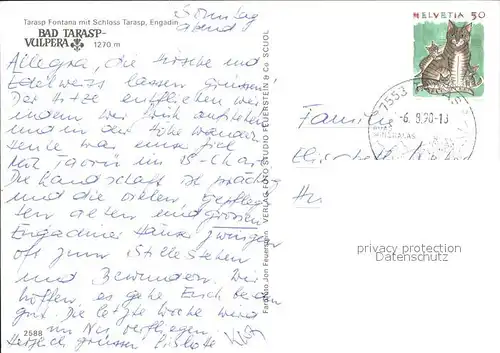 Tarasp Fontana mit Schloss Tarasp, Engadin
BAD TARASP-
VULPERA 1270 m
Sonntag
abend
Allegra, die Hirsche und
Edelweiss lassen grüssen
Der Hitze entfliehen wir
indem wir früh aufstehen
und in der Höhe wandern
Heute war unser Ziel
Mot Tavrü im S-charl
Die Landschaft ist prächtig
und die vielen gepfleg-
ten alten und grossen
Engadiner Häuser zwingen
oft zum Stillestehen
und Bewundern. Wir
hoffen, es gehe Euch beiden
gut. Die letzte Woche wird
im Nu verfliegen.
Herzlich grüssen
2588
Farbfoto Jon Feuerstein
VERLAG FOTO STUDIO FEUERSTEIN & Co SCUOL
HELVETIA 50
7553
-6.8.90-18
Familie
privacy protection
Datenschutz